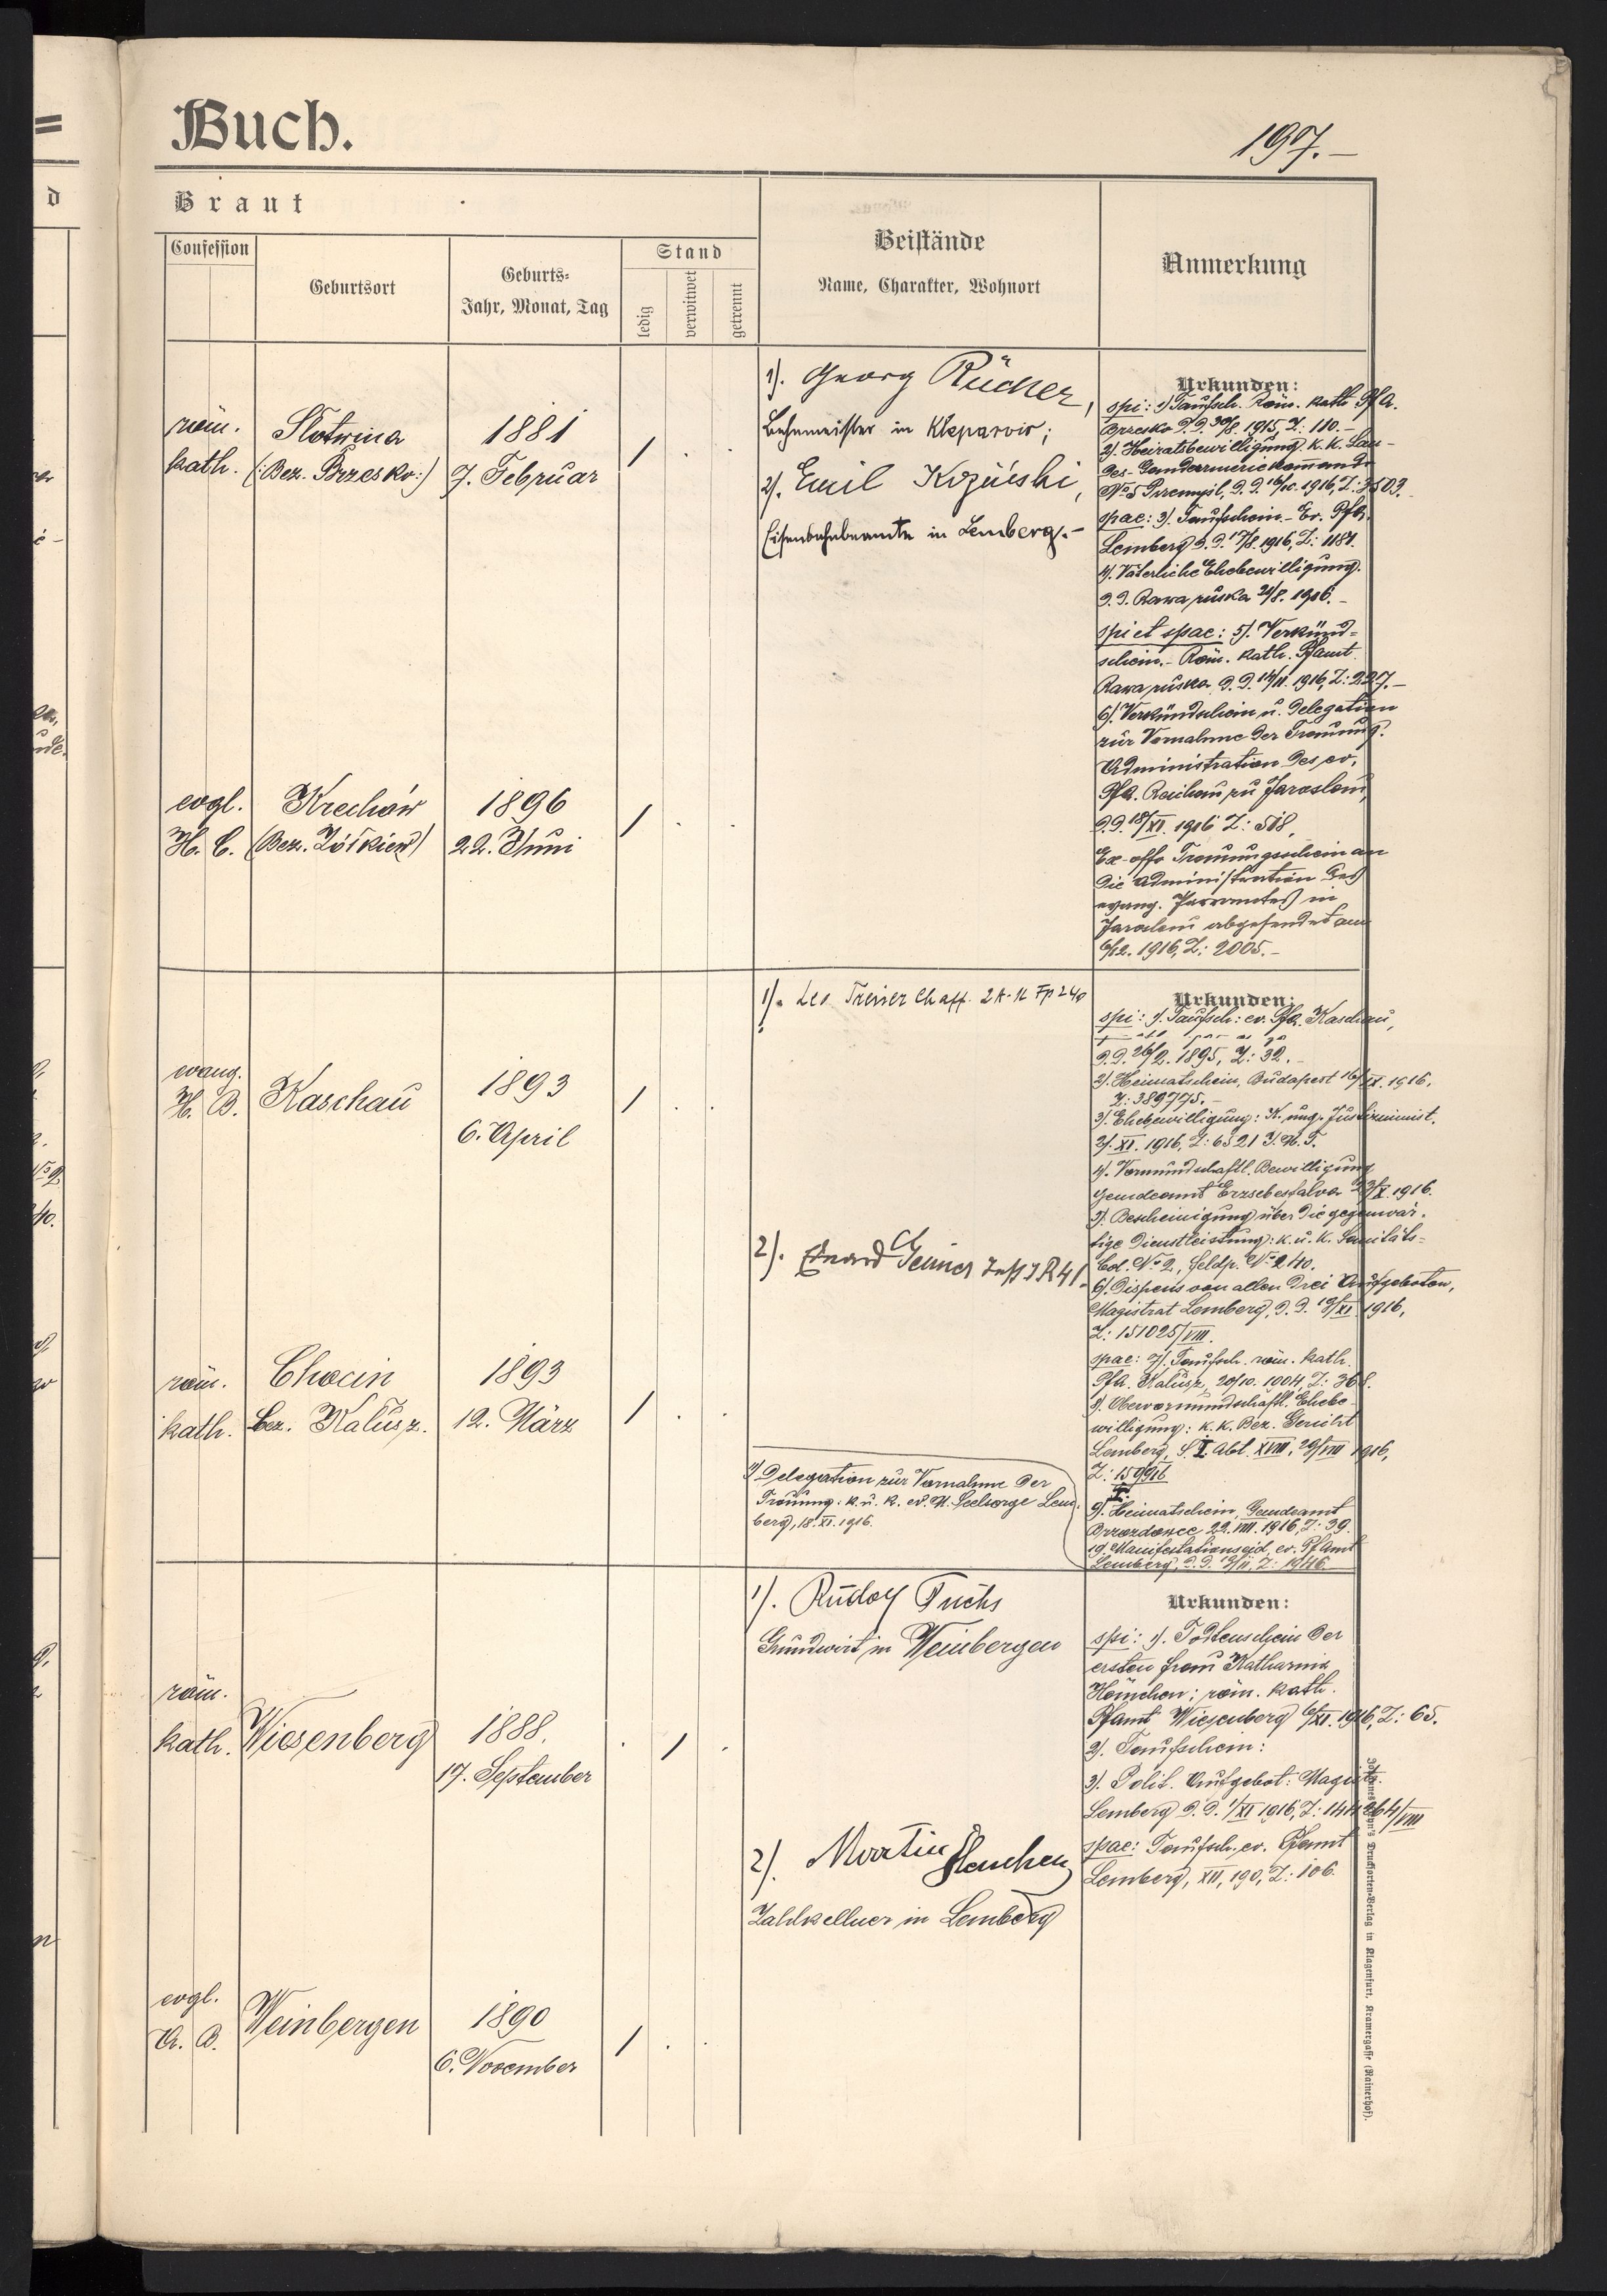 Buch.
197.—
Braut
Confession
Geburtsort
Geburts-
Jahr, Monat, Tag
Stand
ledig
verwitwet
getrennt
Beistände
Name, Charakter, Wohnort
Anmerkung
röm.
kath.
Słotwina
(: Bez. Brzesko:)
1881
7. Februar
1). Georg Rücker,
Bahnmeister in Kleparow;
2). Emil
Eisenbahnbeamte in Lemberg.—
Urkunden:
spi: 1) Taufsch. Röm. kath. PfA.
Brzesko d.d. 30/8. 1915, Z: 110.—
2). Heiratsbewilligung k. k. Lan-
des-Gendarmeriekomando
No 5 Przemysl, d.d. 16/10. 1916, Z: 3503.
spae: 3). Taufschein.— Ev. PfA.
Lemberg d.d. 17/8. 1916, Z: 1187.
4). Väterliche Ehebewilligung.
d.d. Rawa ruska 21/8. 1916.—
spi et spae: 5). Verkünd-
schein.— Röm. kath. Pfamt
Rawa ruska d.d. 14/11. 1916, Z: 227.—
6). Verkündschein u. Delegation
zur Vornahme der Trauung.
Administration des ev.
PfA. Reichau zu Jaroslau,
d.d. 18/XI. 1916 Z: 518,
Ex-offo Trauungsschein an
die Administration des
evang. Pfarramtes in
Jaroslau abgesendet am
6/12. 1916, Z: 2005.—
evgl.
H. C.
Krechów
(Bez. Żółkiew)
1896
22. Juni
1). Leo
Urkunden:
spi: 1). Taufsch: ev. PfA. Kaschau,
d.d. 26/2. 1895, Z: 32.—
2). Heimatschein, Budapest 16/IX. 1916,
Z: 389775.—
3). Ehebewilligung: K. ung. Justizminist.
2/XI. 1916, Z: 6521 I.M.
4). Vormundschaftl. Bewilligung
Gemdeamt 23/X. 1916.
5). Bescheinigung über die gegenwär-
tige Dienstleistung: k. u. k. Sanitäts-
Col. No 2, Feldp. No 240.
6). Dispens von allen drei Aufgeboten,
Magistrat Lemberg, d.d. 18/XI 1916,
Z: 151025/VIII.
spae: 7). Taufsch. röm. kath.
PfA. Kalusz, 20/10. 1904, Z: 368.
8). Obervormundschaftl. Ehebe-
willigung: k. k. Bez. Gericht
Lemberg, S. I. Abt. XVIII, 29/VIII 1916,
9). Heimatschein, Gemdeamt
22. VIII. 1916, Z: 39.
10. Manifestationseid, ev. Pfamt
Lemberg, d.d. 18/11, Z: 1946.
evang.
H. B.
Kaschau
1893
6. April
2). Eduard
röm.
kath.
Chocin
Bez. Kalusz.
1893
12. März
11) Delegation zur Vornahme der
Trauung: k. u. k. ev. M. Seelsorge Lem-
berg, 18. XI. 1916.
1). Rudolf Fuchs
Grundwirt in Weinbergen
Urkunden:
spi: 1). Todtenschein der
ersten Frau Katharina
röm. kath.
Pfamt Wiesenberg 6/XI. 1916, Z: 65.
2). Taufschein:
3). Polit. Aufgebot: Magistr.
Lemberg d.d. 1/XI 1916, Z: 144264/VIII
spae: Taufsch. ev. Pfamt
Lemberg, XII, 190, Z: 106.
röm.
kath.
Wiesenberg
1888.
17. September
2). Martin
Zahlkellner in Lemberg
evgl.
A. B.
Weinbergen
1890
6. November